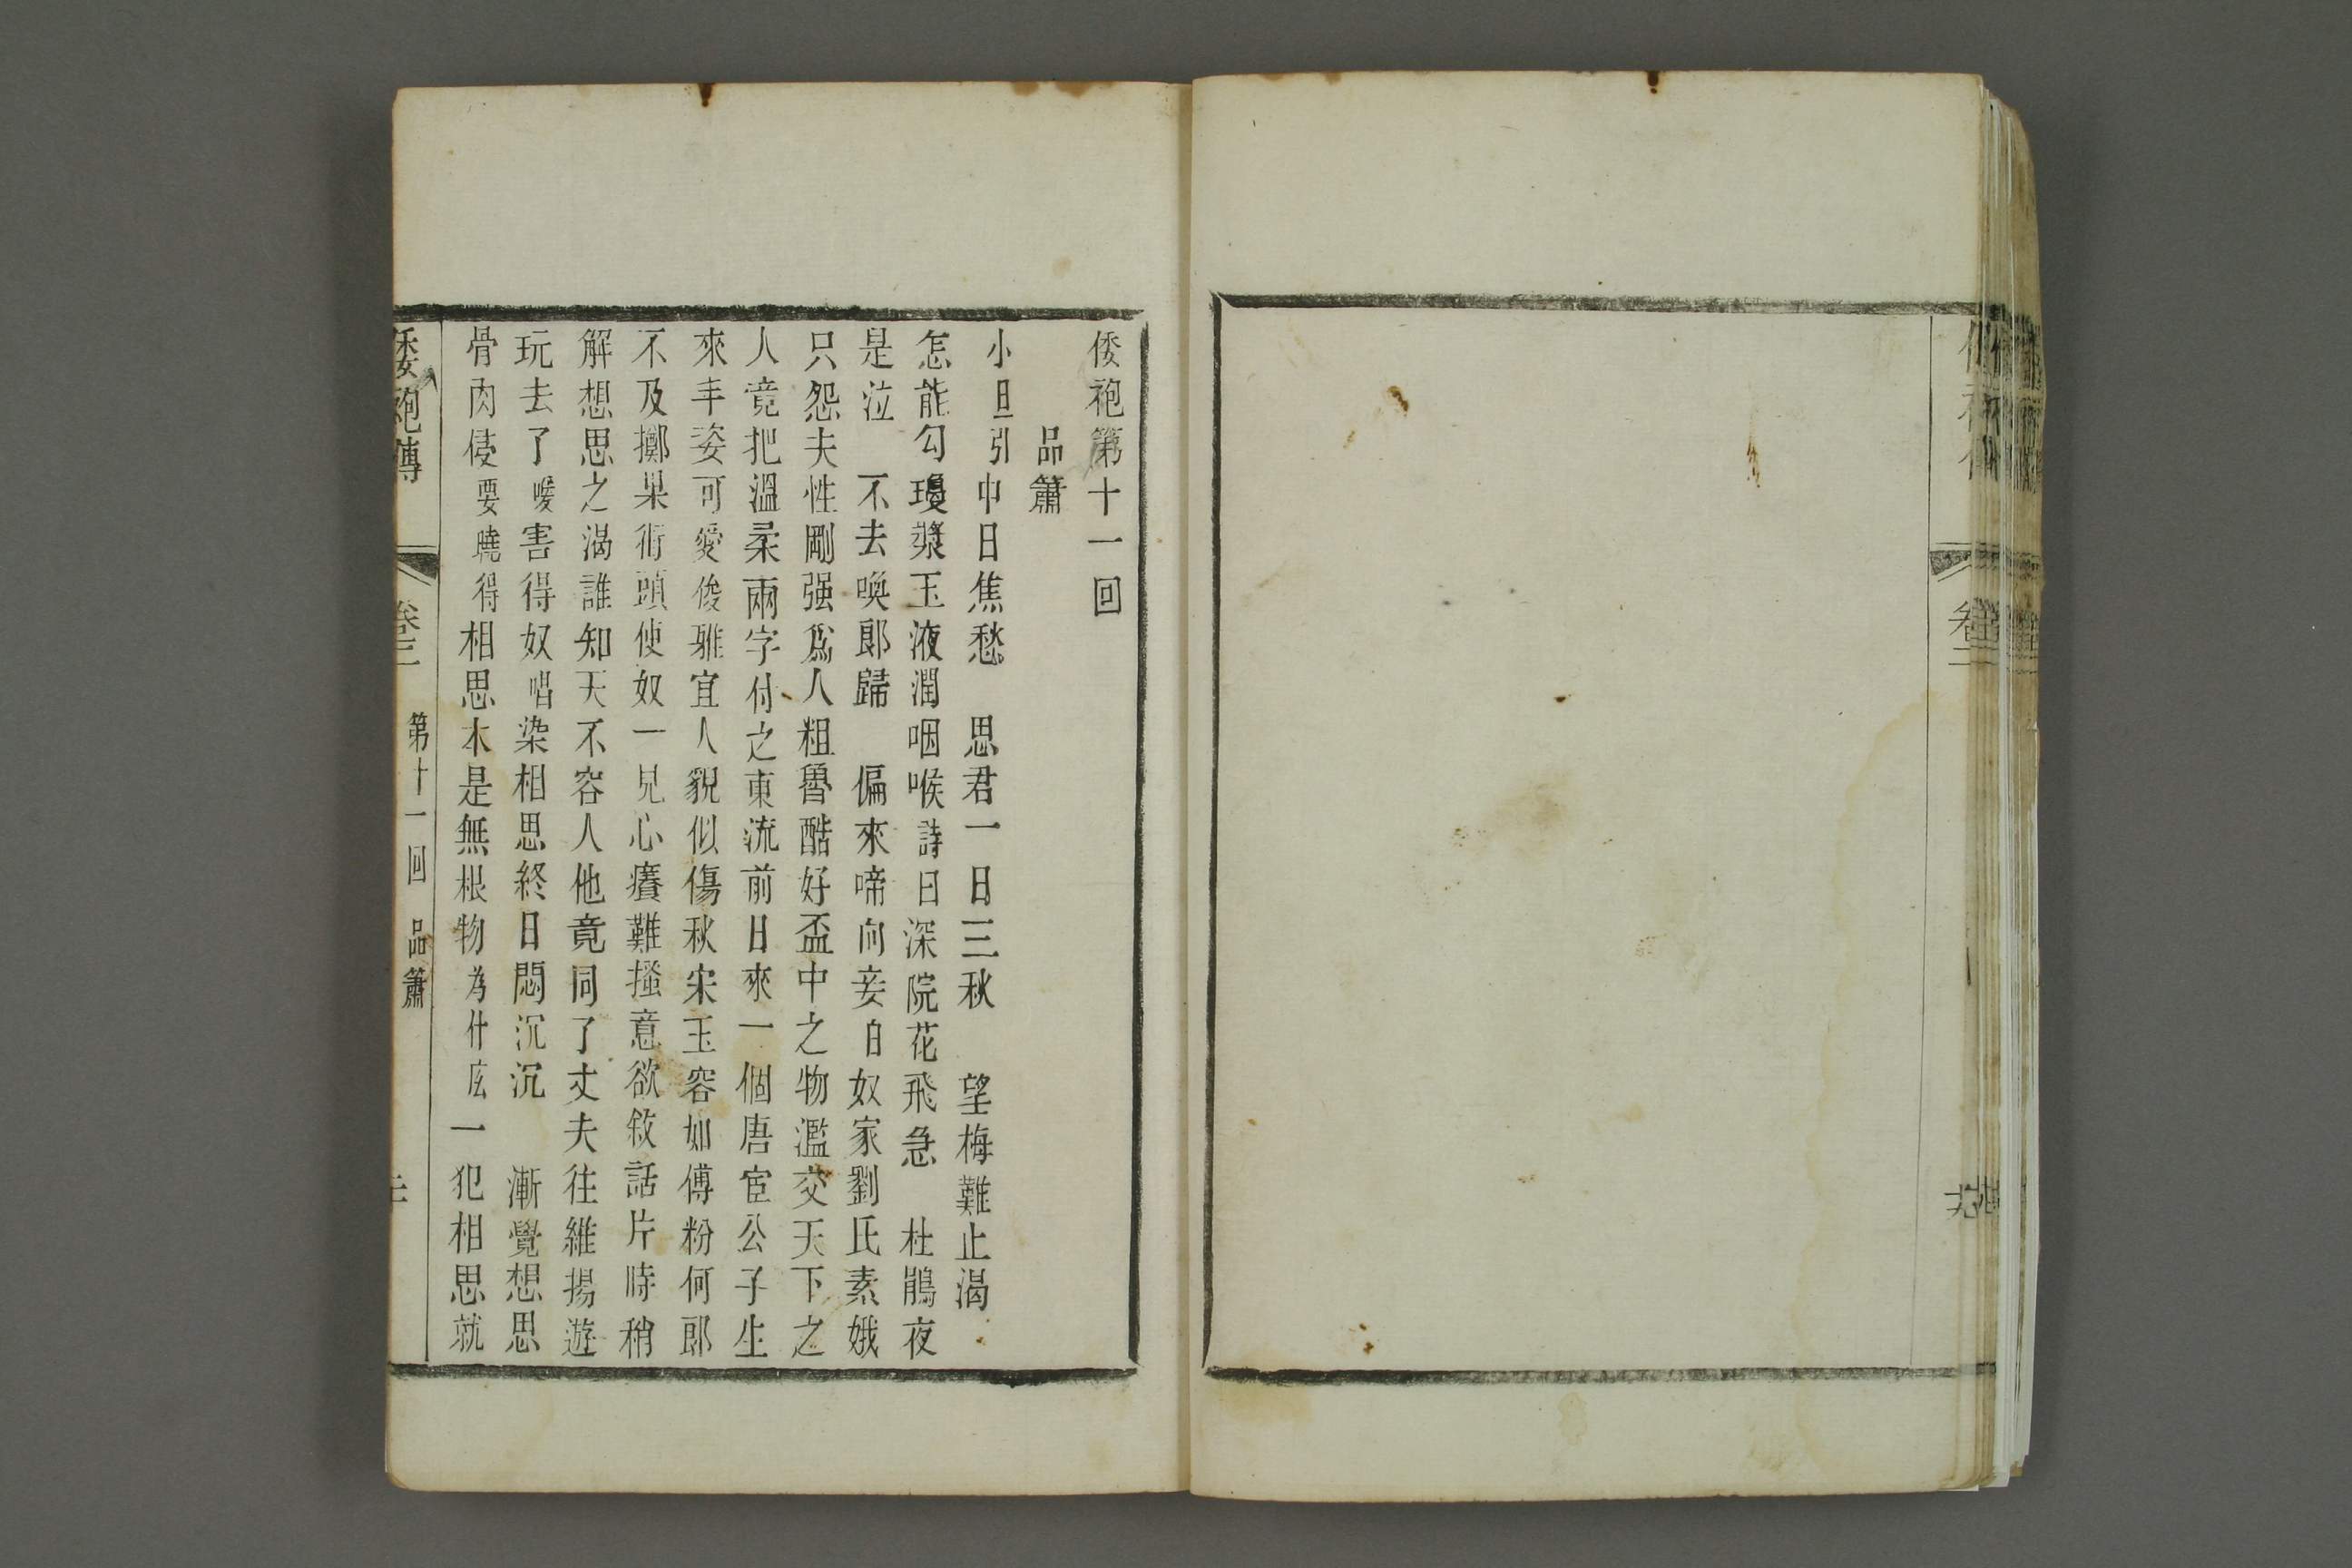 倭袍第十一回
品簫
小旦引中日焦愁　思君一日三秋　望梅難止渴
怎能勾瓊漿玉液潤咽喉詩曰深院花飛急　杜鵑夜
是泣　不去喚郎歸　偏來啼向妾白奴家劉氏素娥
只怨夫性剛强爲人粗魯酷好盃中之物濫交天下之
人竟把溫柔兩字付之東流前日來一個唐宦公子生
來丰姿可愛俊雅宜人貌似傷秋宋玉容如傅粉何郎
不及擲果街頭使奴一見心癢難搔意欲敘話片時稍
解想思之渴誰知天不容人他竟同了丈夫往維揚遊
玩去了嗳害得奴唱染相思終日悶沉沉　漸覺想思
骨肉侵要曉得相思木是無根物為什庅一犯相思就
倭袍傳　卷三　第十一回　品簫
卷二